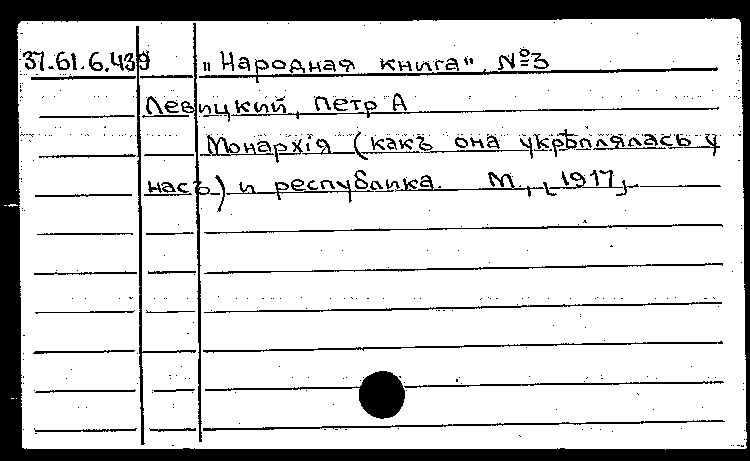 37.61.6.439 „Народная книга" №3
Левицкий, Петр А
Монархія (какъ она укрѣплялась у
насъ) и республика. М., [1917].